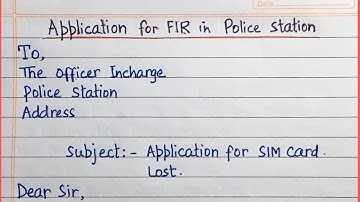 Date
Application for FIR in Police Station
To,
The Officer Incharge
Police Station
Address
Subject:- Application for SIM Card.
Lost.
Dear Sir,